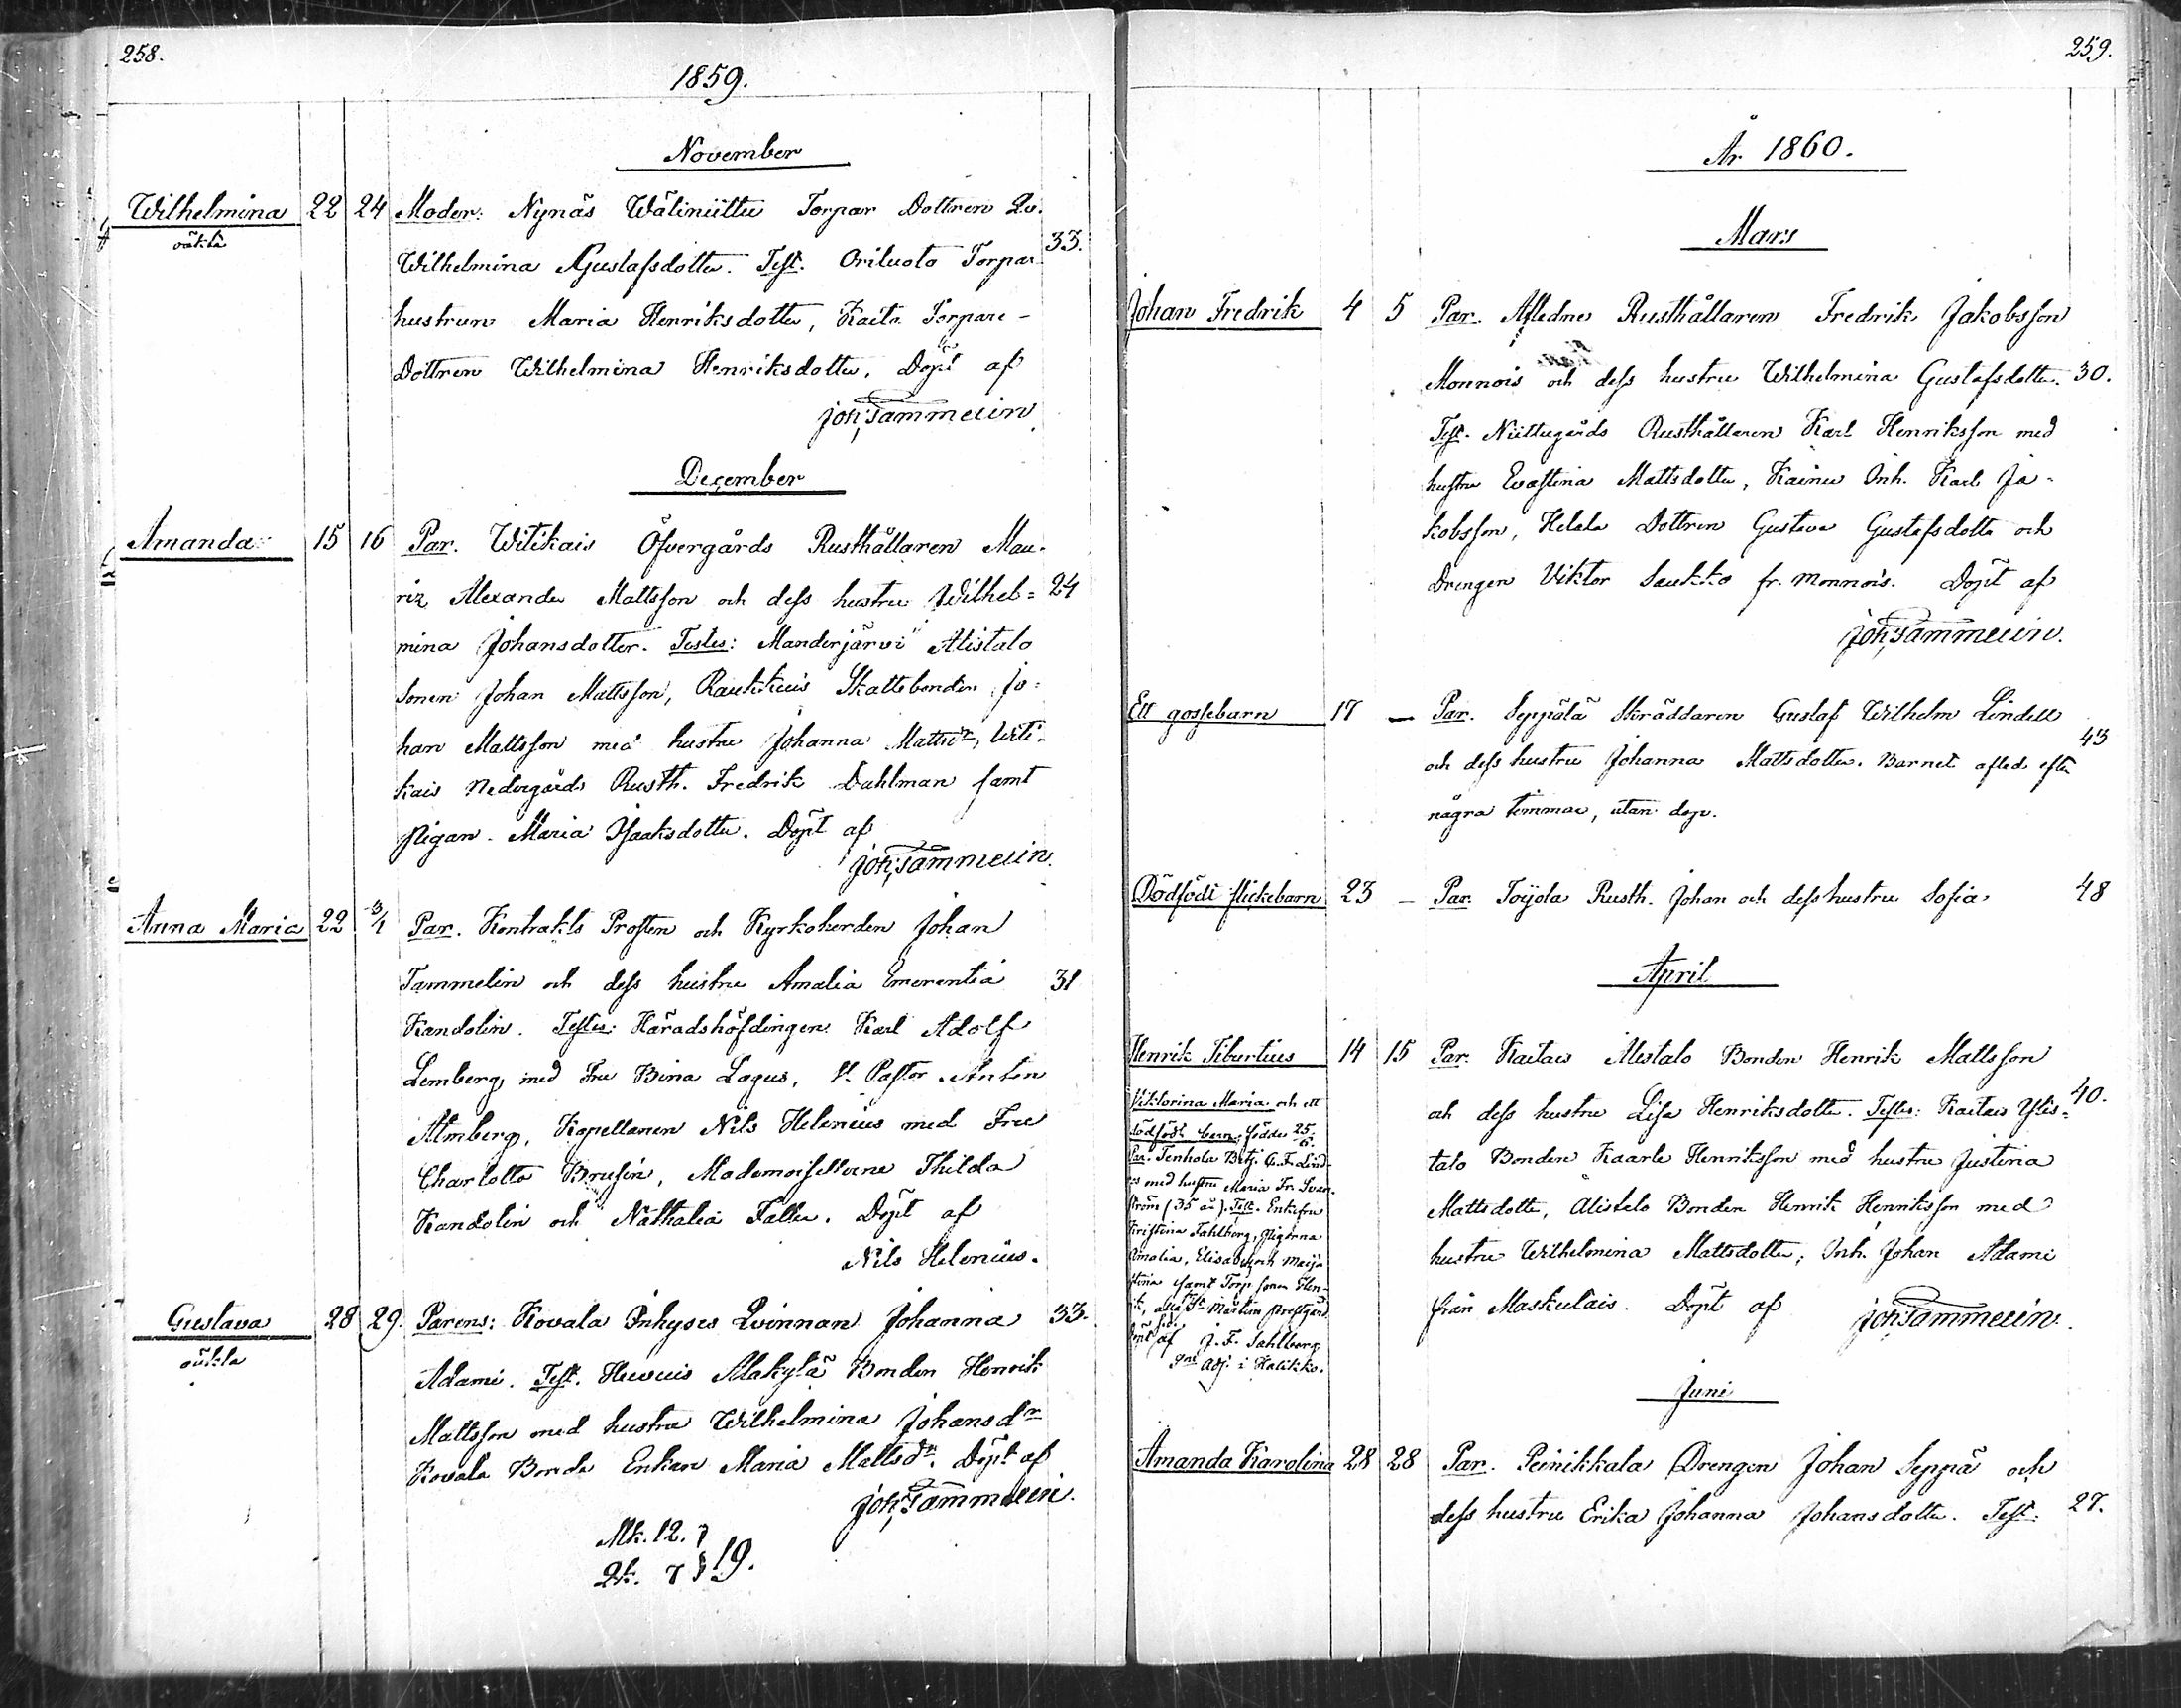 258.
1859.
November
Wilhelmina 22 24 Moder: Nynäs Wäliniittu Torpar Dottren Qv.
oäkta
Wilhelmina Gustafsdotter. Test. Oriluoto Torpar 33.
hustrun Maria Henriksdotter, Kaita Torpare-
Dottren Wilhelmina Henriksdotter. Döpt af
Joh; Tammelin
December
Amanda 15 16 Par. Witikais Öfvergårds Rusthållaren Mau-
riz Alexander Mattsson och dess hustru Wilhel= 24
mina Johansdotter. Testes: Manderjärvi Alistalo
Sonen Johan Mattsson, Raukkuis Skattebonden Jo=
han Mattsson med hustru Johanna Mattsdr, Witi-
kais Nedergårds Rusth. Fredrik Dahlman samt
Pigan Maria Isaaksdotter. Döpt af
Joh; Tammelin.
Anna Maria 22 3/1 Par. Kontrakts Prosten och Kyrkoherden Johan
Tammelin och dess hustru Amalia Emerentia 31
Kandolin. Testes: Häradshöfdingen Karl Adolf
Lemberg med Fru Bina Lagus, V. Pastor Anton
Almberg, Kapellanen Nils Helenius med Fru
Charlotta Brusin, Mademoisellerne Thilda
Kandolin och Nathalia Faller. Döpt af
Nils Helenius.
Gustava 28 29. Parens: Kovala Inhyses Qvinnan Johanna 33.
oäkta
Adami. Test. Alakylä Bonden Henrik
Mattsson med hustru Wilhelmina Johansdr
Kovala Bonde Enkan Maria Mattsdr. Döpt af
Joh; Tammelin.
Mk. 12. }
Qk. 7 } 19.
259.
År 1860.
Mars
Johan Fredrik 4 5 Par. Aflidne Rusthållaren Fredrik Jakobsson
Monnois och dess hustru Wilhelmina Gustafsdotter. 30.
Test. Niittugårds Rusthållaren Karl Henriksson med
hustru Evastina Mattsdotter, Kainu Inh. Karl Ja-
kobsson, Helala Dottren Gustava Gustafsdotter och
Drengen Viktor Saukko fr. Monnois. Döpt af
Joh; Tammelin.
Ett gossebarn 17 — Par. Seppälä Skräddaren Gustaf Wilhelm Lindell
och dess hustru Johanna Mattsdotter. Barnet afled efter 43
några timmar, utan dop.
Dödfödt flickebarn 23 — Par. Toijola Rusth. Johan och dess hustru Sofia. 48
April
Henrik Tiburtius 14 15 Par. Kaitais Alistalo Bonden Henrik Mattsson
och dess hustru Lisa Henriksdotter. Testes: Kaitais Ylis= 40.
talo Bonden Kaarle Henriksson med hustru Justina
Mattsdotter, Alistalo Bonden Henrik Henriksson med
hustru Wilhelmina Mattsdotter, Inh. Johan Adami
från Maskulais. Döpt af Joh; Tammelin.
Viktorina Maria och ett
dödfödt barn födde 25/6.
Par. Tenhola Betj. G. F. Lind-
med hustru Maria Fr. Svan-
ström (35 år). Test. Enkefru
Kristina Sahlberg, Pigorna
Amalia, Elisabet och Maija
Stina samt Torp. sonen Hen-
rik, alla Fr Mårtens prestgård
Döpt af J. F. Sahlberg
Adj. i Halikko.
Juni
Amanda Karolina 28 28 Par. Peinikkala Drengen Johan Seppä och
dess hustru Erika Johanna Johansdotter. Test: 27.